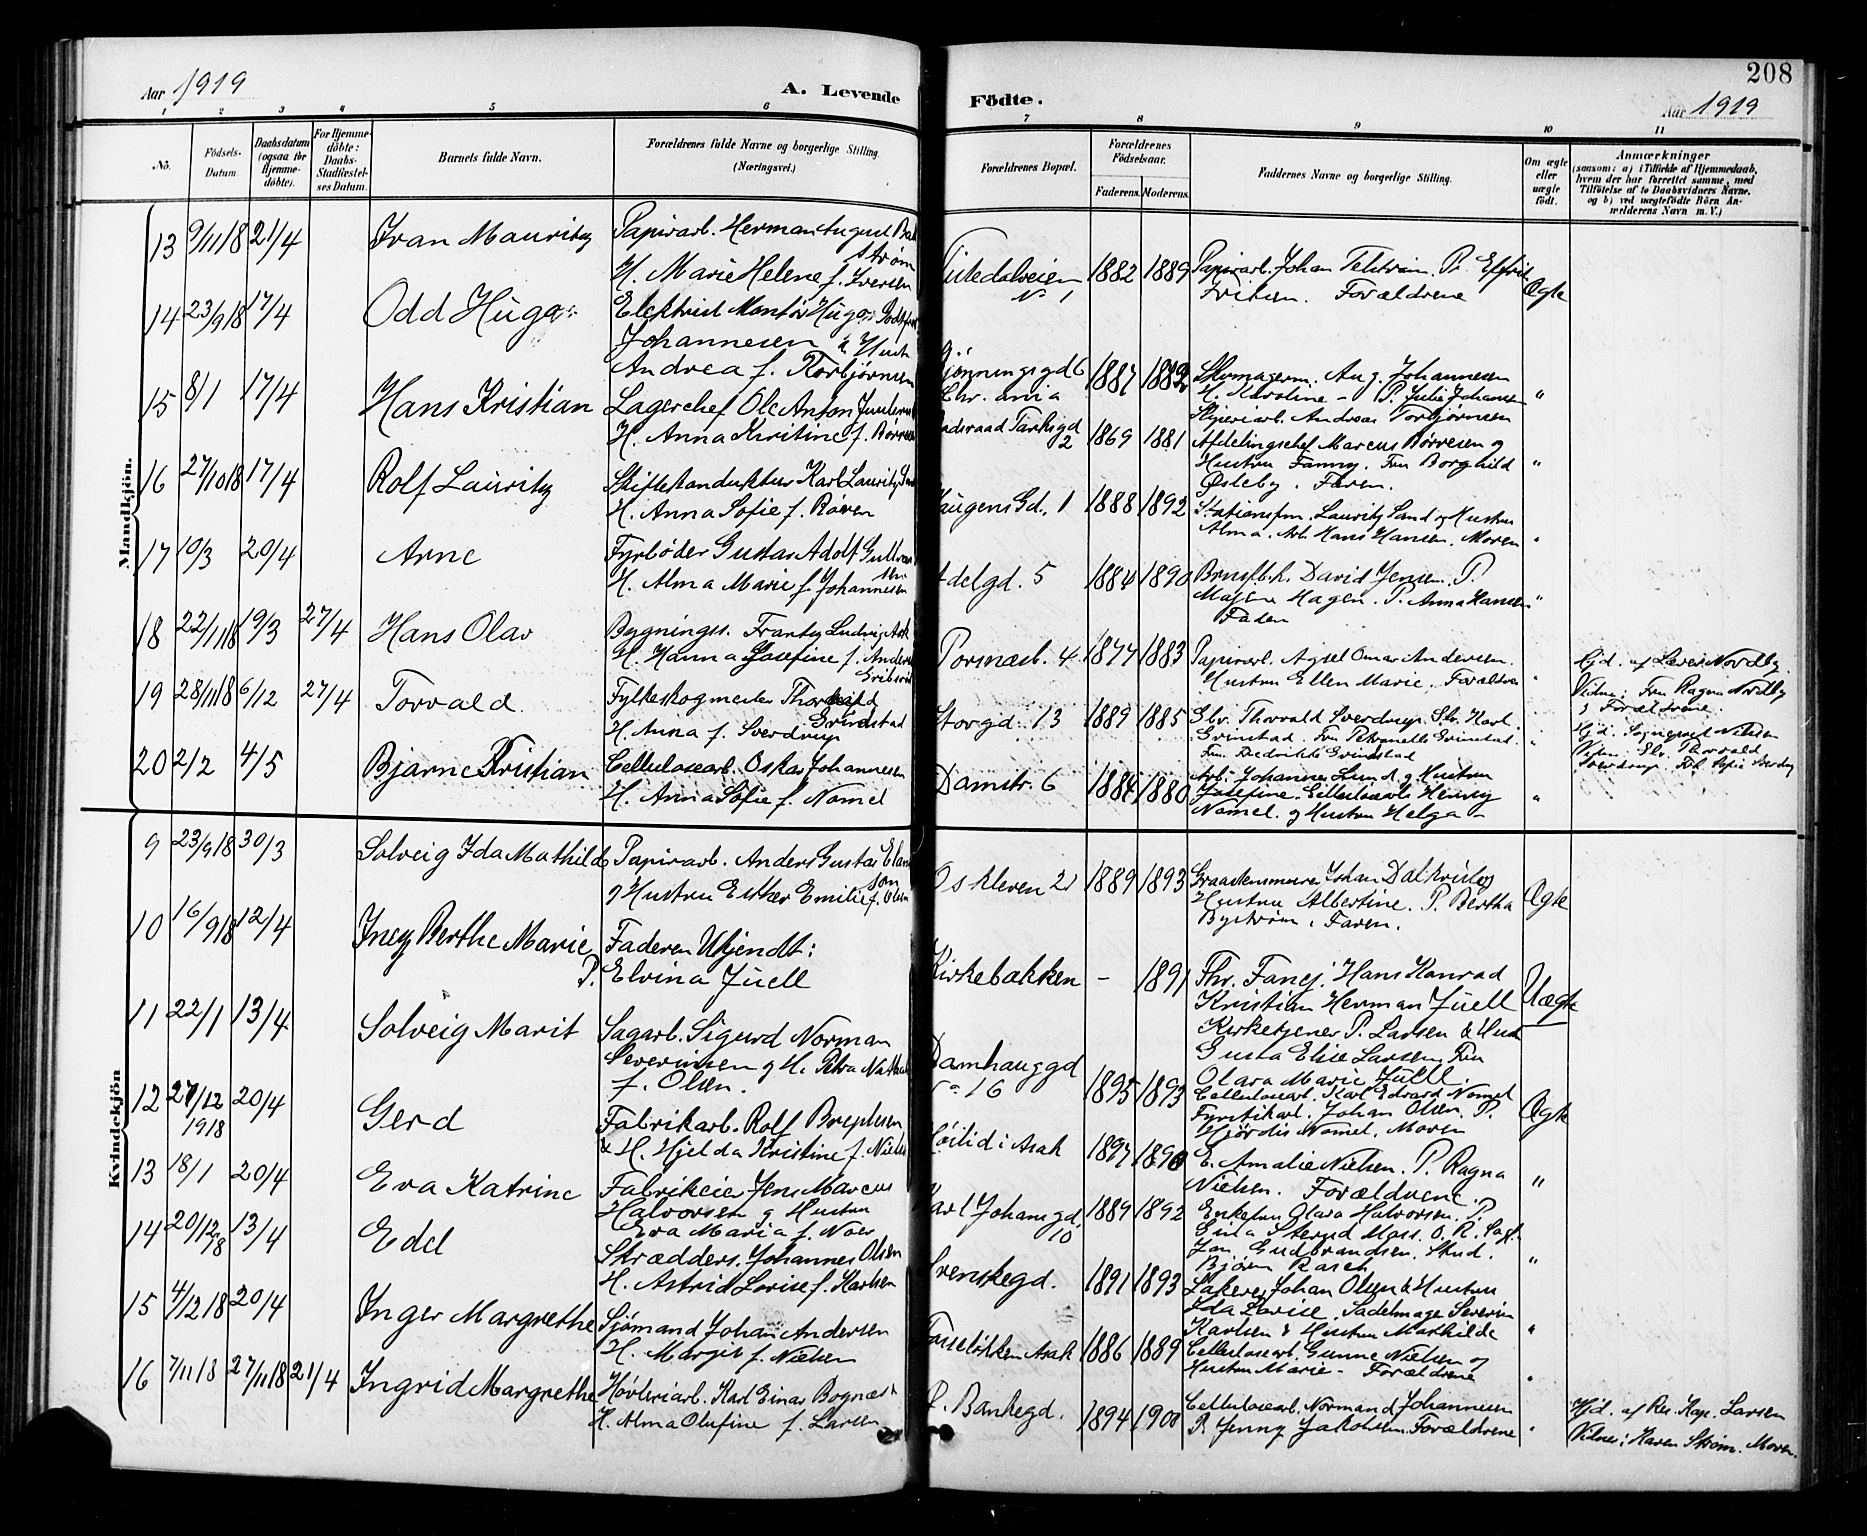 208
Aar 1919
A. Levende
Födte.
Aar 1919
1 2 3 4 5 6 7 8 9 10 11
No.
Födsels-Datum
Daabsdatum (ogsaa for Hjemme-döbte).
For Hjemme-döbte: Daabs-Stadfæstel-ses Datum.
Barnets fulde Navn.
Forældrenes fulde Navne og borgerlige Stilling (Næringsvei.)
Forældrenes Bopæl.
Forældrenes Födselsaar.
Faderens. Moderens.
Faddernes Navne og borgerlige Stilling.
Om ægte eller uægte födt.
Anmærkninger
(saasom: a) i Tilfælde af Hjemmedaab, hvem der har forrettet samme, med Tilföielse af to Daabsvidners Navne, og b) ved uægtefödte Börn An-melderens Navn m. V.)
Mandkjön.
13 9/11 18 21/4 Ivan Mauritz
Papirarb. Herman August
strøm
H. Marie Helene f. Iversen
Tistedalsveien
No 1
1882 1889
Papirarb. Johan
Forældrene
Ægte
14 23/9 18 17/4 Odd Hugo
Elektrisk Montør Hugo
Johannesen & Hustru
Andrea f. Torbjørnsen
Chr.ania
1887
Skomagerm. Aug. Johannesen
H. Karoline - P. Julie Johansen
Andreas Torbjørnsen
"
15 8/1 17/4 Hans Kristian
Lagerchef Ole Anton
H. Anna Kristine f. Børresen
Tanksgd 2
1869 1881
Afdelingschef Marcus Børresen og
Hustru Fanny. Fru Borghild
Østeby. Faren.
"
16 27/10 18 17/4 Rolf Lauritz
Skiftekonduktør Karl Lauritz Sand
H. Anna Sofie f. Røven
Haugens Gd. 1
1888 1892
Stationsfm. Lauritz Sand & Hustru
Alma. Arb. Hans Hansen. Moren
"
17 10/3 20/4 Arne
Fyrbøder Gustav Adolf
H. Alma Marie f. Johannesen
Adelgd. 5
1884 1890
David Jensen. P.
Hagen. P. Anna Hansen
Faderen
"
18 22/11 18 19/3 27/4 Hans Olav
Bygningss. Frantz Ludvig Ask
H. Hanna Josefine f. Anders
Porsnesb. 4
1877 1883
Papirarb. Axel Omar Andersen.
Hustru Ellen Marie. Forældrene
"
Hjd. af Lærer Nordby
Vidner: Fru Ragna Nordby
& Forældrene.
19 28/11 18 6/12 27/4 Torvald
Fylkesskogmester Thorleif
Grindstad
H. Anna f. Sverdrup
Storgd. 13
1889 1885
Thorvald Sverdrup. Karl
Grinstad. Fru Petronelle Grinstad.
Fru Fredrikke Grindstad
"
Hjd. Sogneprest Nilsen
Thorvald
Sverdrup. Sofie Sverdrup
20 2/2 4/5 Bjarne Kristian
Cellulosearb. Oskar Johannesen
H. Anna Sofie f. Nomel
Damstr. 6
1884 1880
Arb. Johannes Lund & Hustru
Josefine. Cellulosearb. Henry
Nomel. & Hustru Helga -
"
Kvindekjön
9 23/9 18 30/3 Solveig Ida Mathilde
Papirarb. Anders Gustav
son
& Hustru Esther Emilie f. Olsen
Oskleven 21
1889 1893
Johan Dalkvist og
Hustru Albertine. P. Bertha
Byström. Faren.
Ægte
10 16/9 18 12/4 Inez Berthe Marie
Faderen Ukjendt:
P. Elvina Juell
Kirkebakken
- 1891
Hans Konrad
Kristian Herman Juell
Kirketjener P. Larsen & Hust
Gusta Elise Larsen, Fru
Olara Marie Juell.
Uægte
11 22/1 13/4 Solveig Marit
Sagarb. Sigurd Norman
Severinsen & H. Petra
f. Olsen.
Damhauggd
No 16
1895 1893
Cellulosearb. Karl Edvard Nomel
Johan Olsen. P.
Hjørdis Nomel. Moren
Ægte
12 27/12 1918 20/4 Gerd
Fabrikarb. Rolf
& H. Hjelda Kristine f. Nielsen
Asak
1897 1890
E. Amalie Nielsen. P. Ragna
Nielsen. Forældrene.
"
13 18/1 20/4 Eva Katrine
Fabrikeier Jens Marcus
Halvorsen & Hustru
Eva Maria f. Noer
Karl Johansgd.
10
1889 1892
Enkefru Olara Halvorsen. P.
Moss. O. R. Sagf.
Jan Gudbrandsen. Stud.
Bjørn Rasch
"
14 20/12 18 13/4 Edel
Skrædders. Johannes Olsen
H. Astrid Lovise f. Karlsen
Svenskegd.
1891 1893
Johan Olsen & Hustru
Ida Lovise. Sadelmager Severin
Karlsen & Hustru Mathilde
"
15 4/12 18 20/4 Inger Margrethe
Sjømand Johan Andersen
H. Margit f. Nielsen
Asak
1886 1889
Cellulosearb. Gunne Nielsen og
Hustru Marie - Forældrene
"
16 7/11 18 27/11 18 21/4 Ingrid Margrethe
Høvleriarb. Karl Einar Bognæs
H. Alma Olufine f. Larsen
P. Bankegd.
1894 1900
Cellulosearb. Normand Johannesen
P. Jenny Jakobsen. Forældrene
"
Hjd. af Res. Kap. Larsen
Vidner: Karen Strøm. Moren.